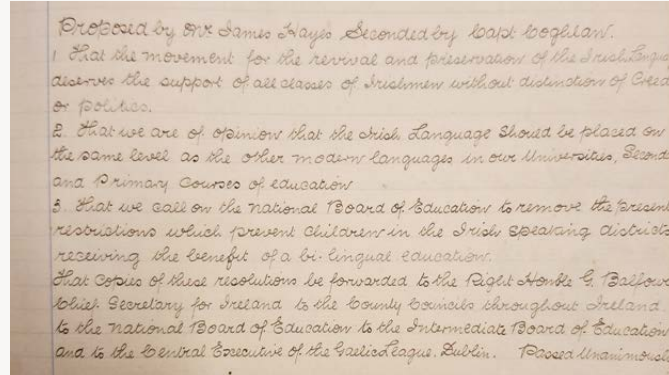 Proposed by Mr James Hayes Seconded by Capt Coghlan.
1 That the movement for the revival and preservation of the Irish Languag
deserves the support of all classes of Irishmen without distinction of Creed
or politics.
2. That we are of opinion that the Irish Language should be placed on
the same level as the other modern languages in our Universities, Second
and Primary Courses of education
3. That we call on the National Board of Education to remove the present
restrictions which prevent Children in the Irish speaking districts
receiving the benefit of a bi-lingual education.
That copies of these resolutions be forwarded to the Right Honble G. Balfour
Chief Secretary for Ireland to the County Councils throughout Ireland.
to the National Board of Education to the Intermediate Board of Education
and to the Central Executive of the Gaelic League. Dublin. Passed Unanimously